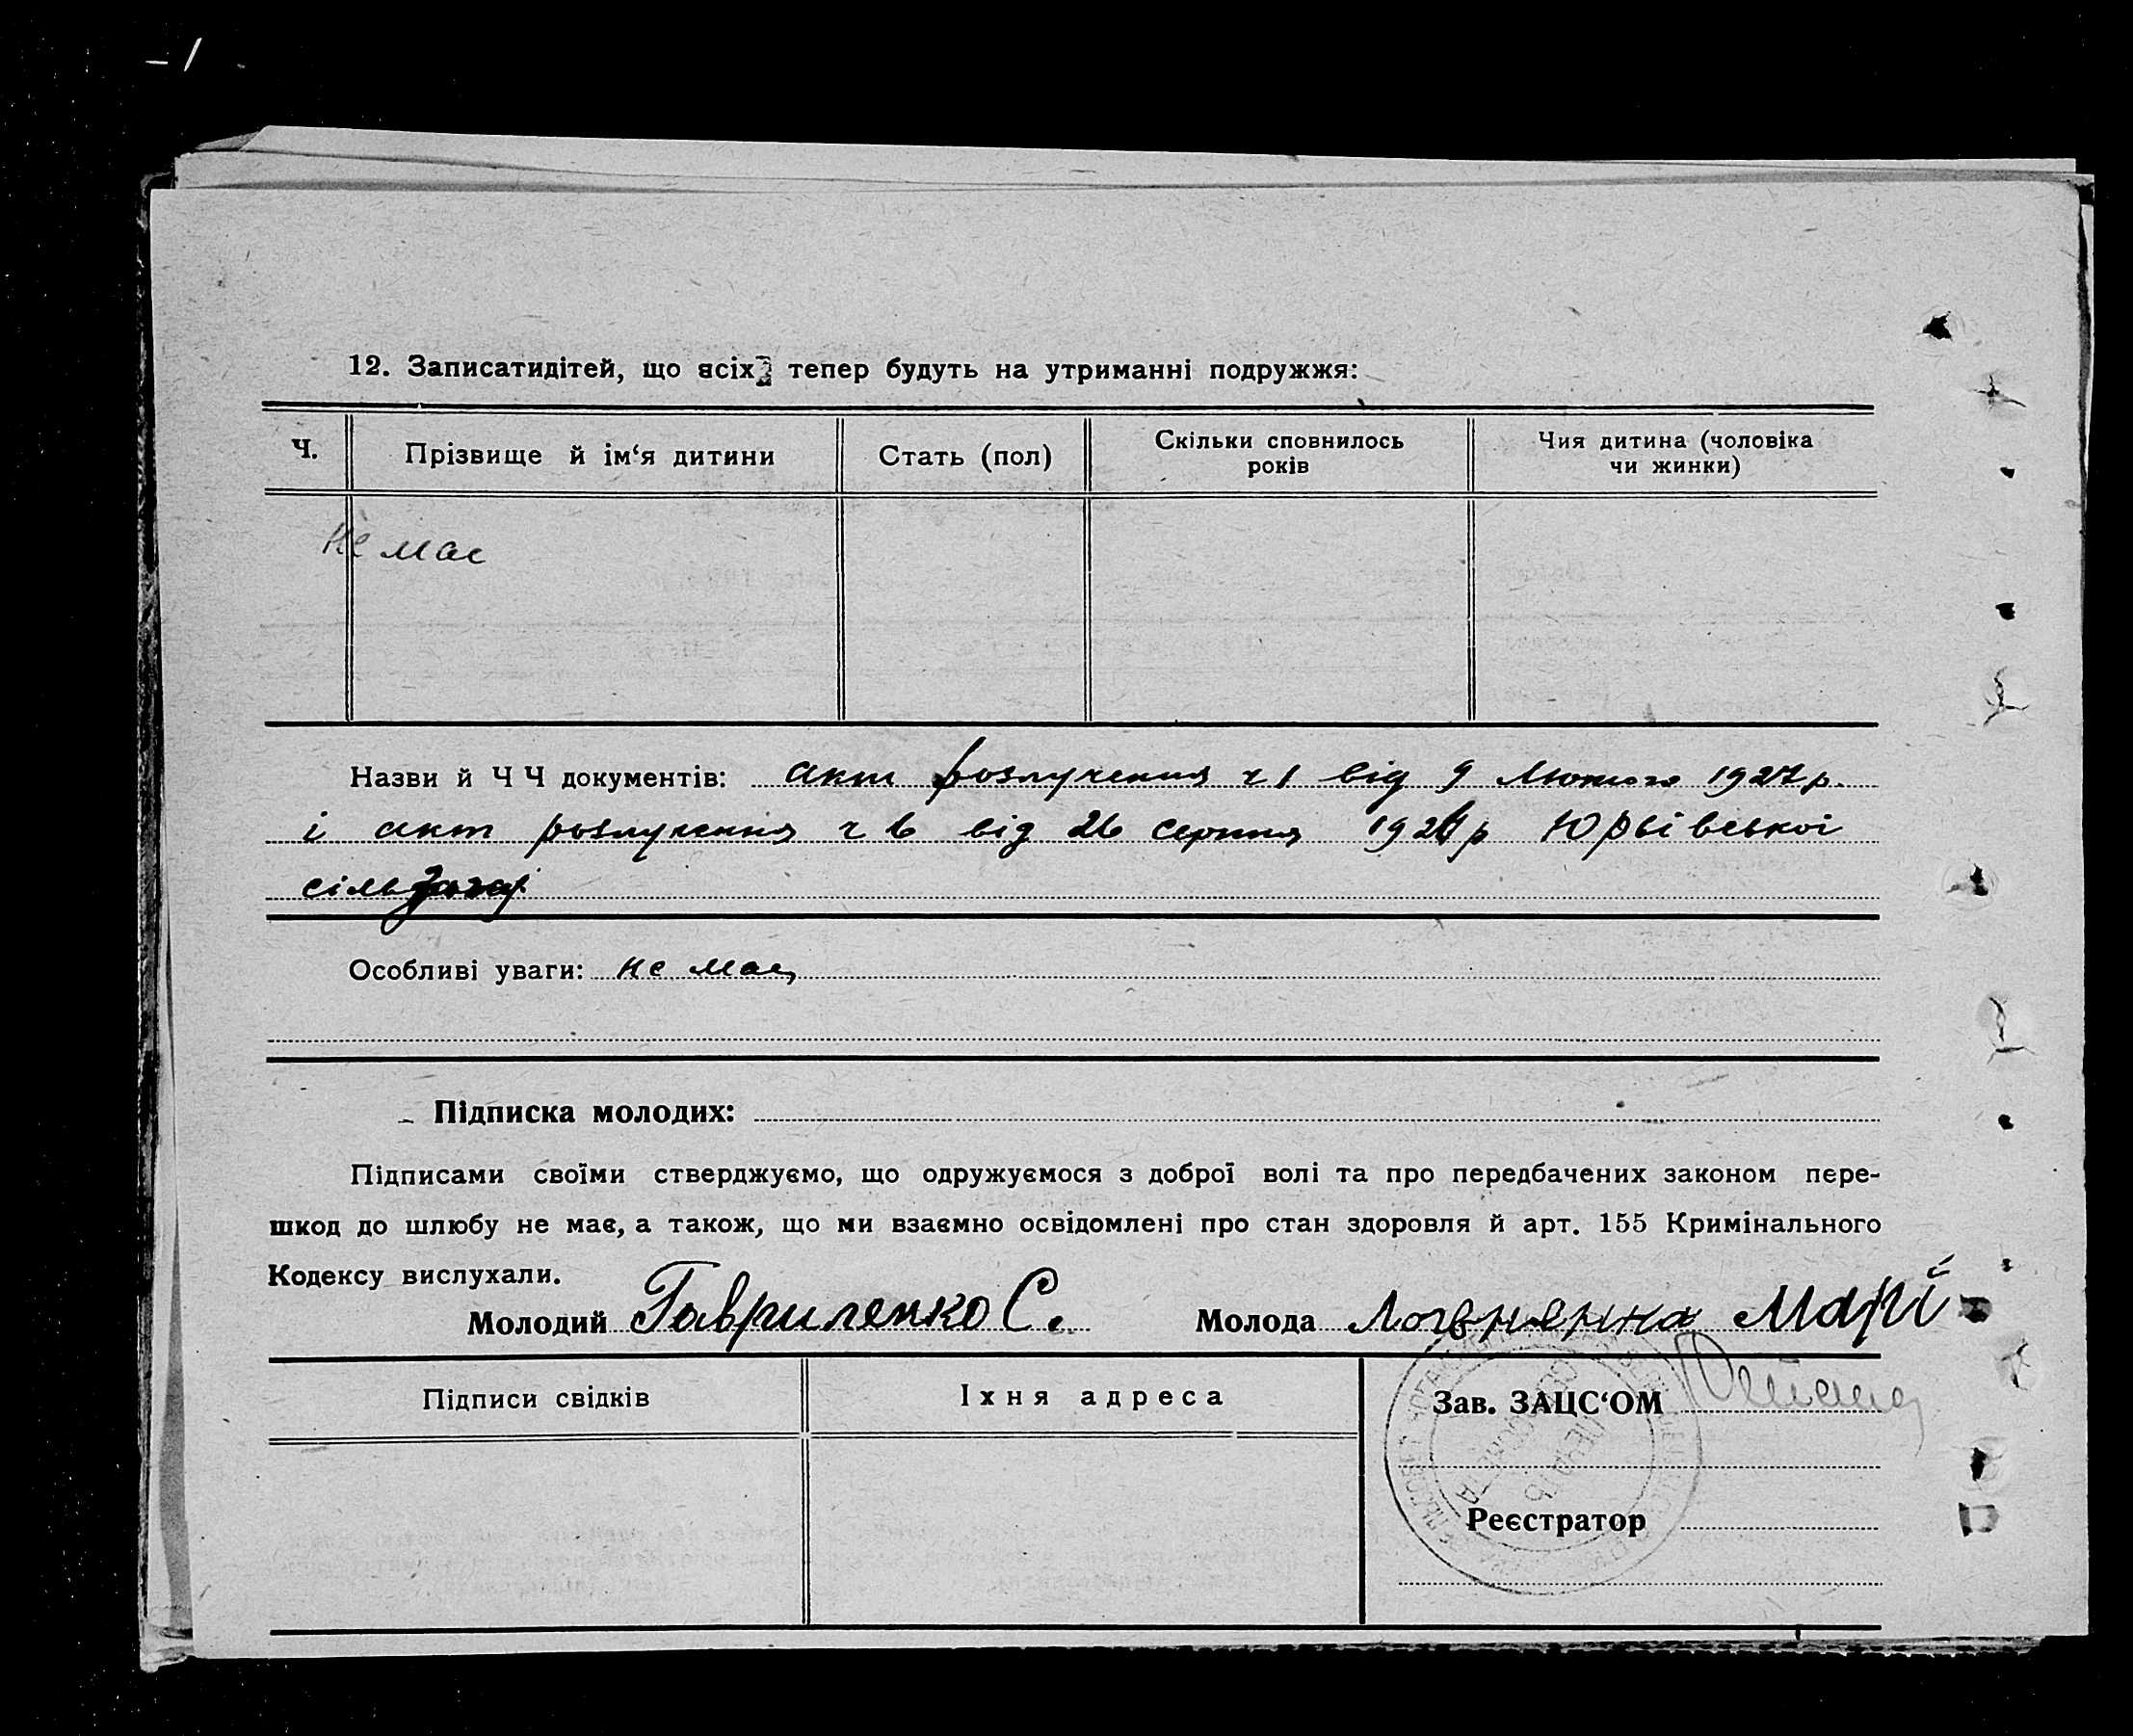 12. Записатидітей, що всіх тепер будуть на утриманні подружжя:
Ч.
Прізвище й ім‘я дитини
Стать (пол)
Скільки сповнилось
років
Чия дитина (чоловіка
чи жинки)
не має
Назви й Ч Ч документів: акт розлучення ч 1 від 9 Лютого 1927 р.
і акт розлучення ч 6 від 26 серпня р Юрьівської
Особливі уваги: не має
Підписка молодих:
Підписами своїми стверджуємо, що одружуємося з доброї волі та про передбачених законом пере-
шкод до шлюбу не має, а також, що ми взаємно освідомлені про стан здоровля й арт. 155 Кримінального
Кодексу вислухали.
Молодий Гавриленко С. Молода Марі
Підписи свідків
Іхня адреса
Зав. ЗАЦС‘ОМ
Реєстратор